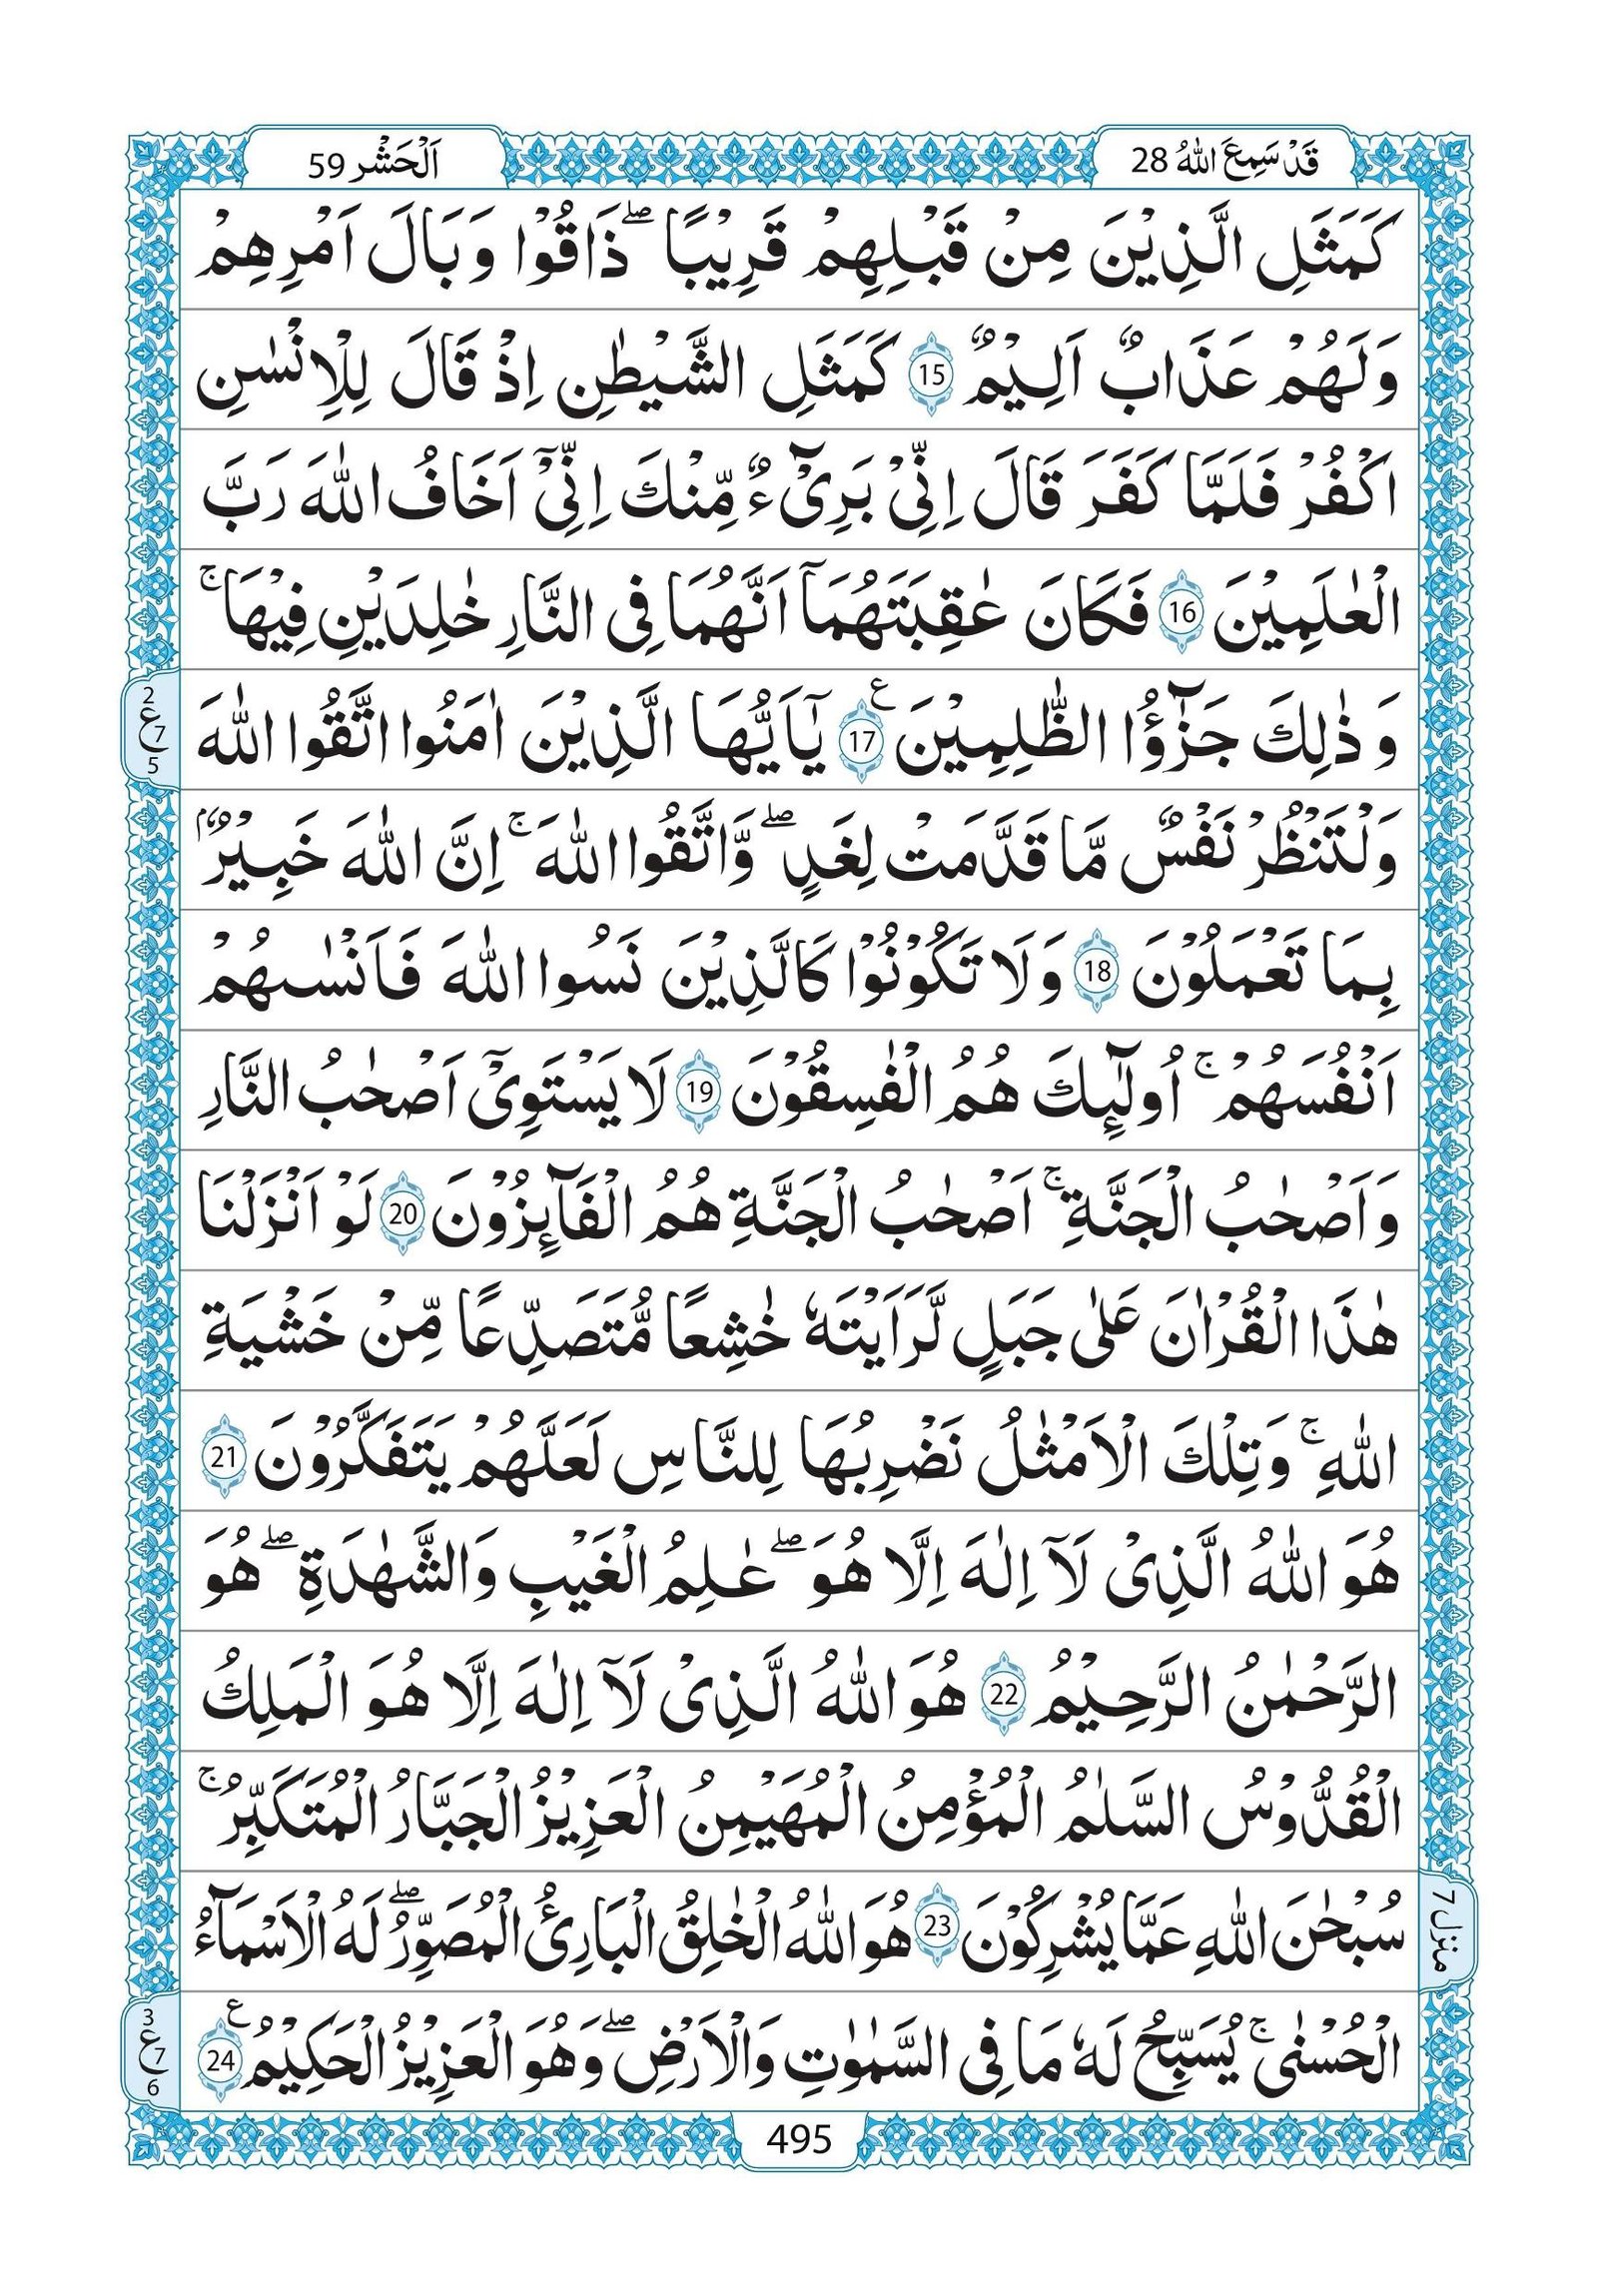 قَدْ سَمِعَ اللّٰهُ 28
اَلْحَشْر 59
كَمَثَلِ الَّذِيْنَ مِنْ قَبْلِهِمْ قَرِيْبًا ۖ ذَاقُوْا وَبَالَ اَمْرِهِمْ
وَلَهُمْ عَذَابٌ اَلِيْمٌ 15 كَمَثَلِ الشَّيْطٰنِ اِذْ قَالَ لِلْاِنْسٰنِ
اكْفُرْ فَلَمَّا كَفَرَ قَالَ اِنِّىْ بَرِىْٓءٌ مِّنْكَ اِنِّىْٓ اَخَافُ اللّٰهَ رَبَّ
الْعٰلَمِيْنَ 16 فَكَانَ عٰقِبَتَهُمَآ اَنَّهُمَا فِى النَّارِ خٰلِدَيْنِ فِيْهَا ۚ
وَذٰلِكَ جَزٰٓؤُا الظّٰلِمِيْنَ ع 17 يٰٓاَيُّهَا الَّذِيْنَ اٰمَنُوا اتَّقُوا اللّٰهَ
2
ع 7
5
وَلْتَنْظُرْ نَفْسٌ مَّا قَدَّمَتْ لِغَدٍ ۖ وَّاتَّقُوا اللّٰهَ ۚ اِنَّ اللّٰهَ خَبِيْرٌۢ
بِمَا تَعْمَلُوْنَ 18 وَلَا تَكُوْنُوْا كَالَّذِيْنَ نَسُوا اللّٰهَ فَاَنْسٰىهُمْ
اَنْفُسَهُمْ ۚ اُولٰٓئِكَ هُمُ الْفٰسِقُوْنَ 19 لَا يَسْتَوِىْٓ اَصْحٰبُ النَّارِ
وَاَصْحٰبُ الْجَنَّةِ ۚ اَصْحٰبُ الْجَنَّةِ هُمُ الْفَآئِزُوْنَ 20 لَوْ اَنْزَلْنَا
هٰذَا الْقُرْاٰنَ عَلٰى جَبَلٍ لَّرَاَيْتَهٗ خٰشِعًا مُّتَصَدِّعًا مِّنْ خَشْيَةِ
اللّٰهِ ۚ وَتِلْكَ الْاَمْثٰلُ نَضْرِبُهَا لِلنَّاسِ لَعَلَّهُمْ يَتَفَكَّرُوْنَ 21
هُوَ اللّٰهُ الَّذِىْ لَآ اِلٰهَ اِلَّا هُوَ ۖ عٰلِمُ الْغَيْبِ وَالشَّهٰدَةِ ۖ هُوَ
الرَّحْمٰنُ الرَّحِيْمُ 22 هُوَ اللّٰهُ الَّذِىْ لَآ اِلٰهَ اِلَّا هُوَ الْمَلِكُ
الْقُدُّوْسُ السَّلٰمُ الْمُؤْمِنُ الْمُهَيْمِنُ الْعَزِيْزُ الْجَبَّارُ الْمُتَكَبِّرُ ۚ
سُبْحٰنَ اللّٰهِ عَمَّا يُشْرِكُوْنَ 23 هُوَ اللّٰهُ الْخٰلِقُ الْبَارِئُ الْمُصَوِّرُ ۖ لَهُ الْاَسْمَآءُ
منزل 7
الْحُسْنٰى ۚ يُسَبِّحُ لَهٗ مَا فِى السَّمٰوٰتِ وَالْاَرْضِ ۖ وَهُوَ الْعَزِيْزُ الْحَكِيْمُ ع 24
3
ع 7
6
495